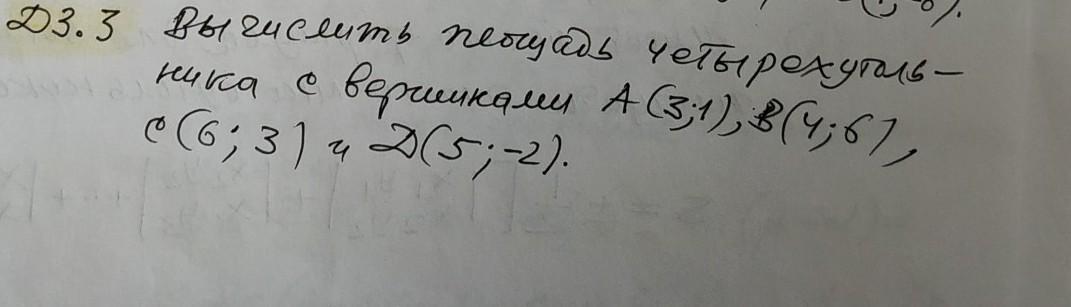 ДЗ.3 Вычислить площадь четырехуголь-
ника с вершинами А(3;1), В(4;6),
С(6;3) и Д(5;-2).